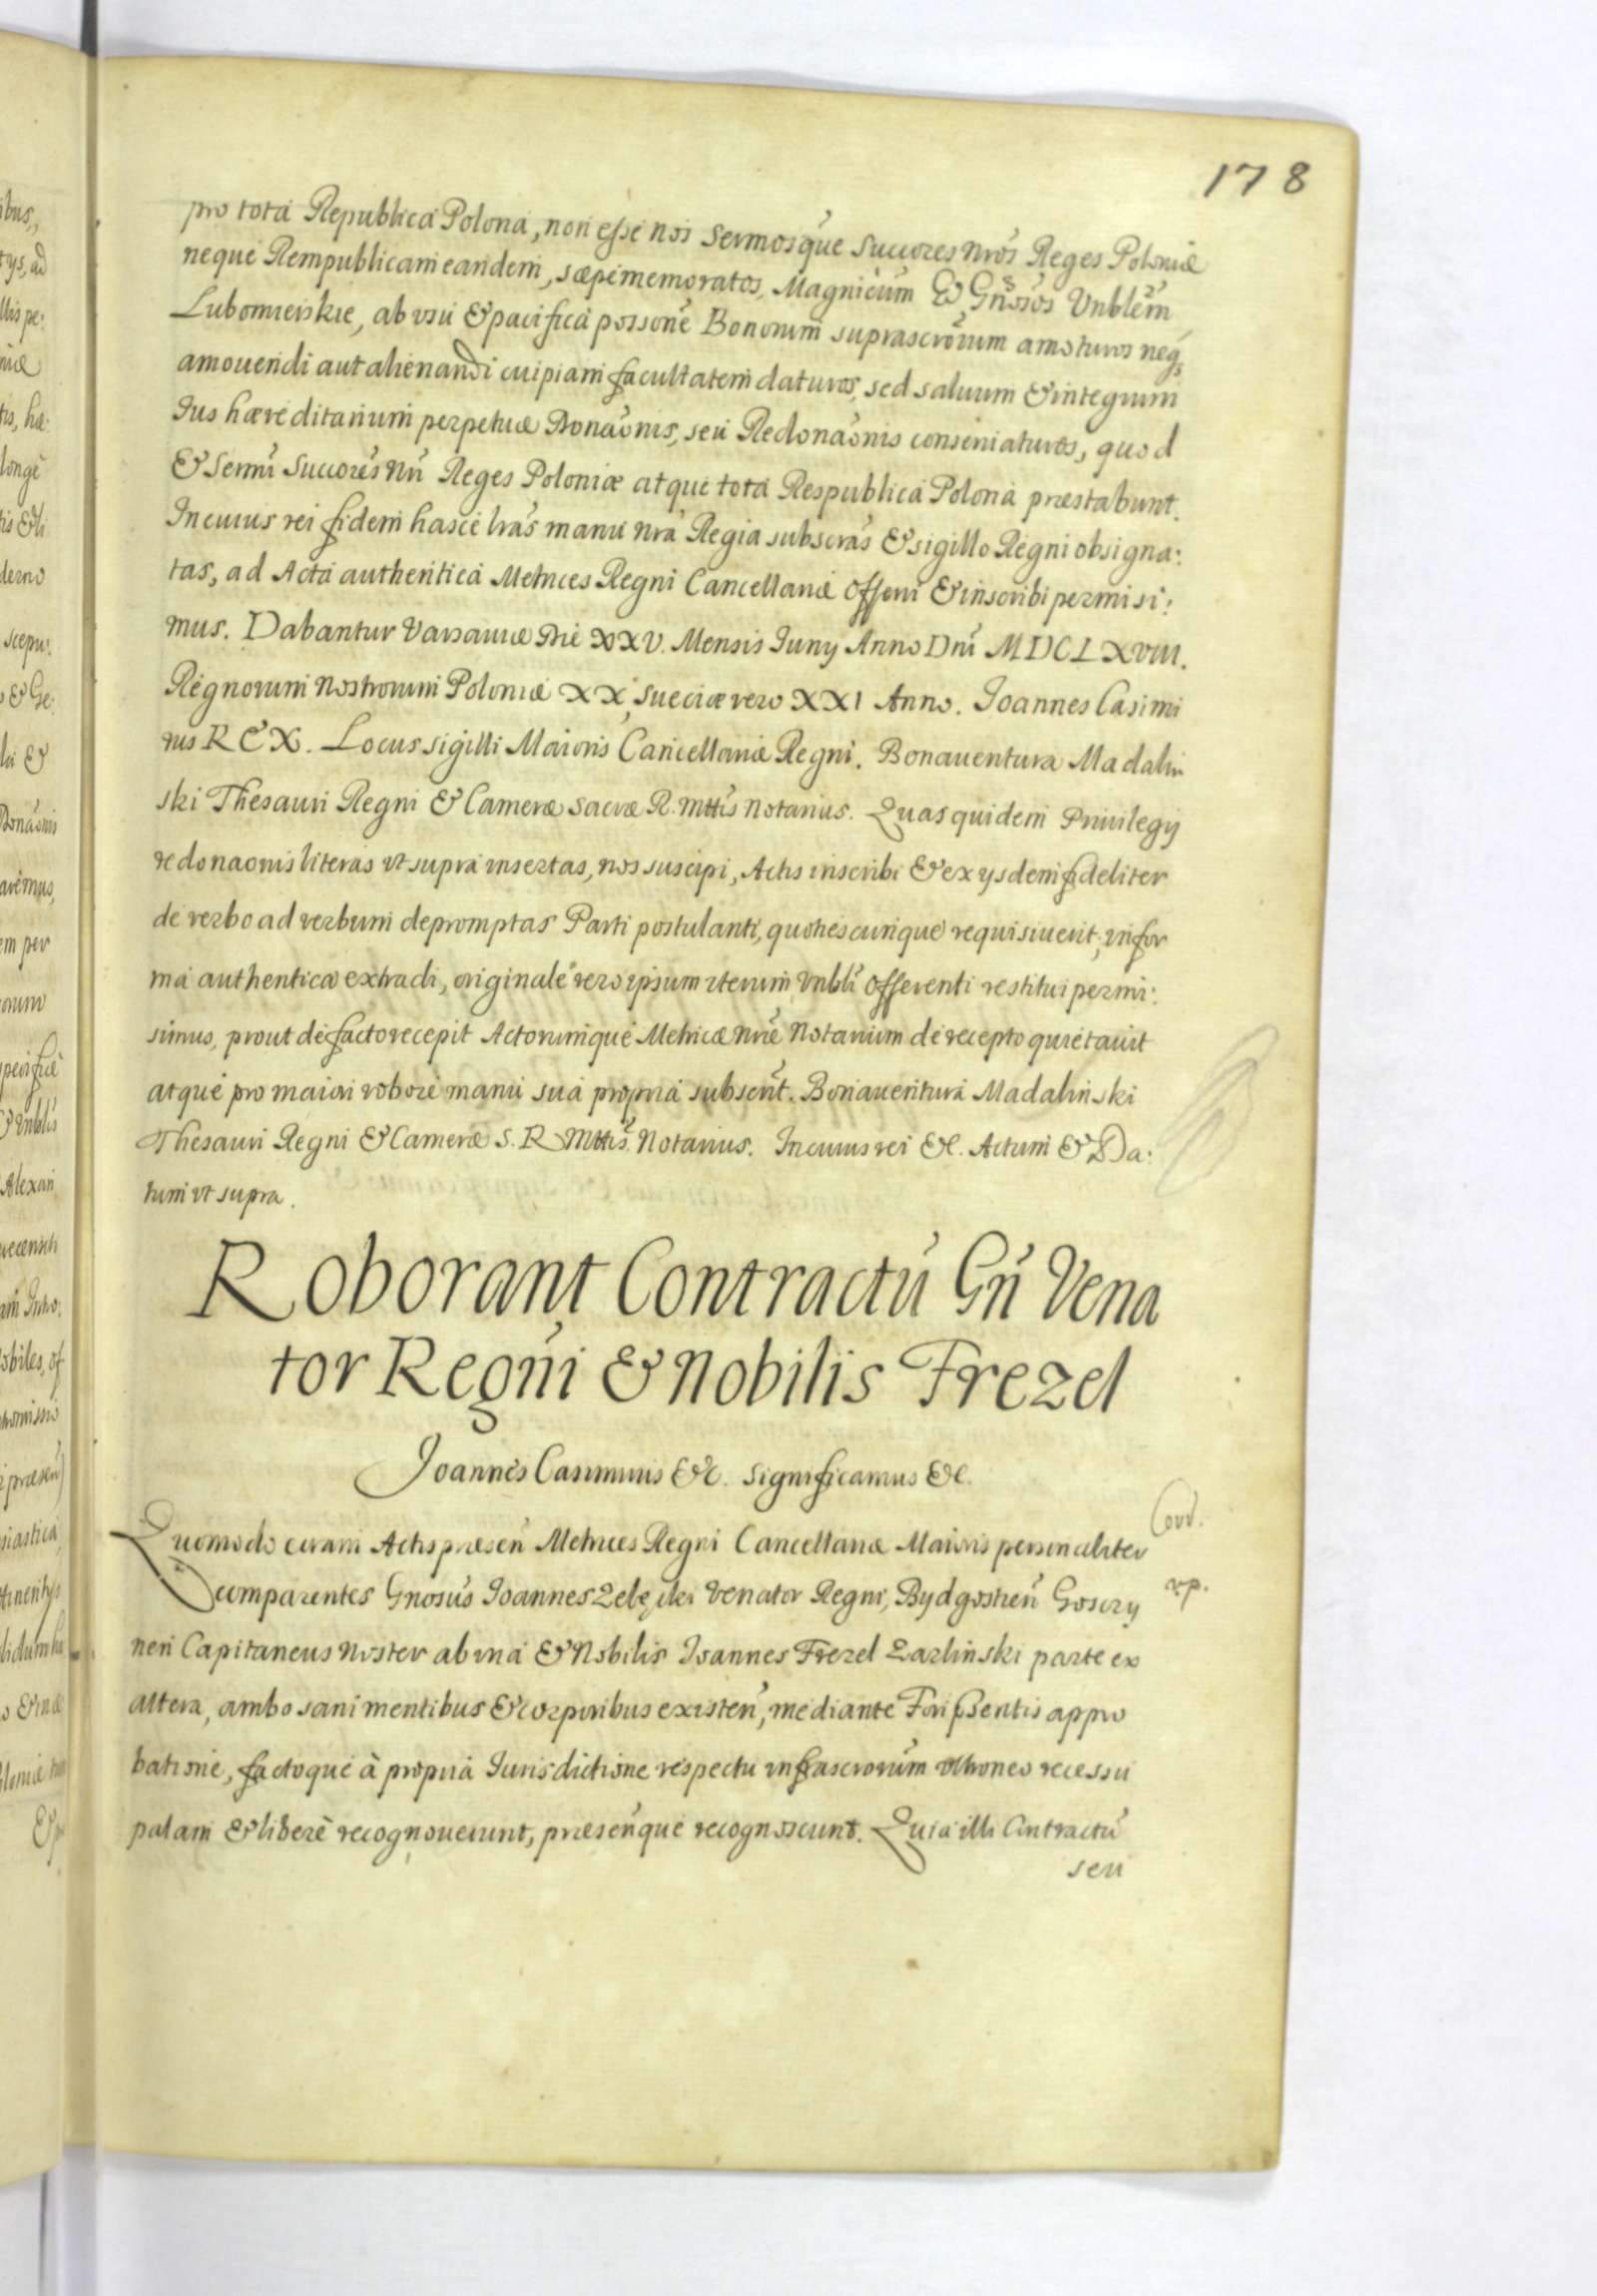 178
pro tota Republica Polona, non esse nos Sermosque Succores nros Reges Poloniæ
neque Rempublicam eandem, sæpememoratos, Magnicum & Gnosos Vnblem
Lubomierskie, ab vsu & pacifica possone Bonorum suprascrorum amoturos neq
amouendi aut alienandi cuipiam facultatem daturos, sed saluum & integrum
Ius hæreditarium perpetuæ Donaonis, seu Redonaonis conseruaturos, quod
& Sermi Succores nri Reges Poloniæ atque tota Respublica Polona præstabunt.
In cuius rei fidem hasce lras manu nra Regia subscras & sigillo Regni obsigna:
tas, ad Acta authentica Metrices Regni Cancellariæ offerri & inscribi permisi:
mus. Dabantur Varsauiæ Die XXV. Mensis Iuny Anno Dni MDCLXVIII.
Regnorum Nostrorum Poloniæ XX, Sueciæ vero XXI Anno. Joannes Casimi
rus REX. Locus sigilli Maioris Cancellariæ Regni. Bonauentura Madalin
ski Thesauri Regni & Cameræ Sacræ R. Mttis Notarius. Quas quidem Priuilegij
redonaonis literas vt supra insertas, nos suscipi, Actis inscribi & ex ysdem fideliter
de verbo ad verbum depromptas Parti postulanti, quotiescunque requisiuerit, in for
ma authentica extradi, originale vero ipsum iterum Vnbli offerenti restitui permi:
simus, prout de facto recepit Actorumque Metricæ nræ Notarium de recepto quietauit
atque pro maiori robore manu sua propria subscrit. Bonauentura Madalinski
Thesauri Regni & Cameræ S. R Mttis. Notarius. In cuius rei &c. Actum & Da:
tum vt supra.
Roborant Contractu Gn Vena
tor Regni & Nobilis Frezel
Joannes Casimirus &c. Significamus &c.
Quomodo coram Actis præsen Metrices Regni Cancellariæ Maioris personaliter
Cord.
comparentes Gnosus Joannes Zelęcki Venator Regni, Bydgostien Goszczy
rp.
nen Capitaneus Noster ab vna & Nobilis Joannes Frezel Zarlinski parte ex
altera, ambo sani mentibus & corporibus existen, mediante Fori psentis appro
batione, factoque à propria Iurisdictione respectu infrascrorum vltroneo recessu
palam & liberè recognouerunt, præsenque recognoscunt. Quia illi Contractu
seu